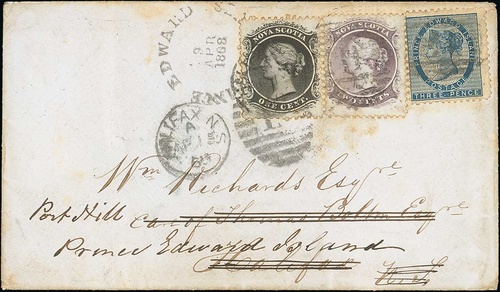 EDWARD
19
APR
1868
NOVA SCOTIA
ONE CENT
NOVA SCOTIA
PRINCE EDWARD ISLAND
POSTAGE
THREE PENCE
HALIFAX N S
Wm Richards Esqre
Port Hill
Care of Thomas Bolton Esqre
Prince Edward Island
Halifax
N.S.